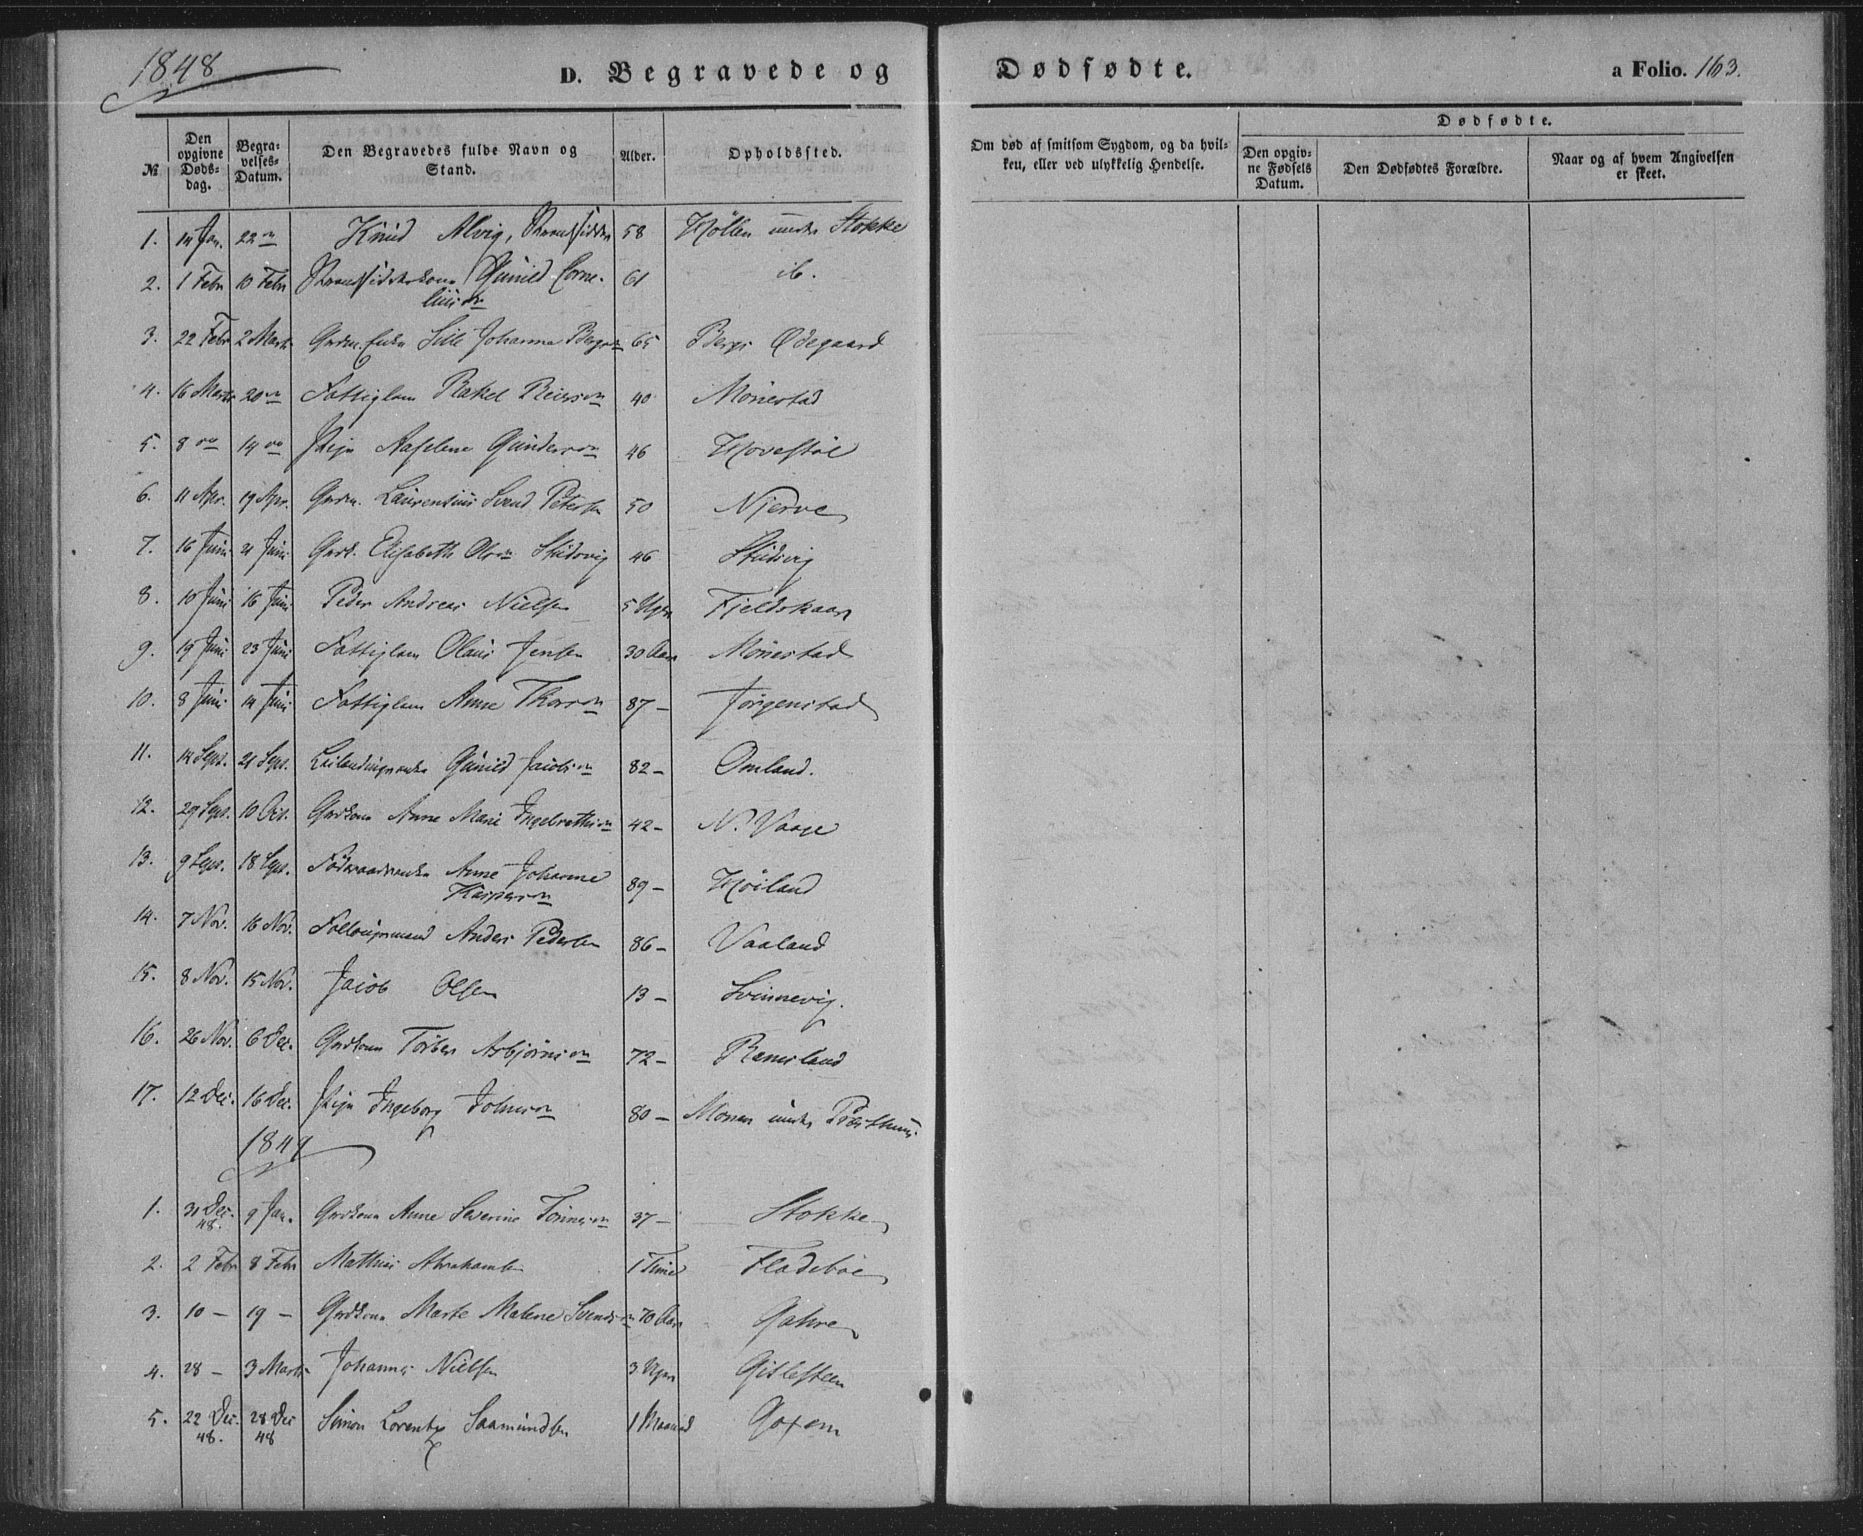 1848
D. Begravede og Dødfødte.
a Folio. 163.
№ Den opgivne Dødsdag. Begravelses-Datum. Den Begravedes fulde Navn og Stand. Alder. Opholdssted. Om død af smitsom Sygdom, og da hvilken, eller ved ulykkelig Hendelse. Dødfødte. Den opgivne Fødsels Datum. Den Dødfødtes Forældre. Naar og af hvem Angivelsen er skeet.
1. 14 Jan. 22 Knud Alvig, Strandsidder 58 Høllen under Stokke
2. 1 Febr 10 Febr Strandsidderkone Gunild Corne-
61 ib.
3. 22 Febr 2 Marts Gdm. Enke Sille Johanna Berge 65 Bergs Ødegaard
4. 16 Marts 20 Fattiglem Rakel Reiers 40 Mönestad
5. 8 14 Pige Aaselene Gunders 46 Hovestöl
6. 11 Apr. 19 Apr. Gdm. Laurentius Svend Petersen 50 Njerve
7. 16 Juni 21 Juni Gdk. Elisabeth Ols Studevig 46 Studevig
8. 10 Juni 16 Juni Peder Andreas Nielsen 5 Uger Fjeldskaar
9. 19 Juni 23 Juni Fattiglem Olaus Jensen 30 Aar Mönestad
10. 8 Juni 14 Juni Fattiglem Anne Thors 87 – Jörgenstad
11. 14 Sept. 21 Sept. Leilendingsenke Gunild Jacobs 82 – Omland.
12. 29 Sept. 10 Oct. Gdkone Anne Marie Ingebreths 42 – N. Vaage
13. 9 Sept. 18 Sept. Föderaadsenke Anne Johanne
Kaspers 89 – Höiland
14. 7 Nov. 16 Nov. Anders Pedersen 86 – Vaaland
15. 8 Nov. 15 Nov. Jacob Olsen 13 – Svinnevig.
16. 26 Nov. 6 Dec. Gdkone Torber Asbjörns 72 – Remesland
17. 12 Dec. 16 Dec. Pige Ingeborg Johns 80 – Monen under
1849
1. 31 Dec. 48. 9 Jan. Gdkone Anne Severine Tönnes 37 – Stokke
2. 2 Febr 8 Febr Matthias Abrahamsen 1 Time Fladeböe
3. 10 – 19 – Gdkone Marte Malene Svends 70 Aar Gahre
4. 28 – 3 Marts Johannes Nielsen 3 Uger Gislesteen
5. 22 Dec. 48. 28 Dec 48 Simon Lorentz Saamundsen 1 Maaned Goxem